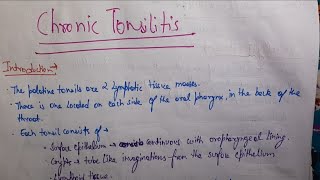 Chronic Tonsilitis
Introduction →
• The palatine tonsils are 2 lymphatic tissue masses.
• There is one located on each side of the oral pharynx, in the back of the
throat.
• Each tonsil consists of →
• Surface epithelium → continuous with oropharyngeal lining.
• Crypts → tube like invaginations from the surface epithelium
• Lymphoid tissue.